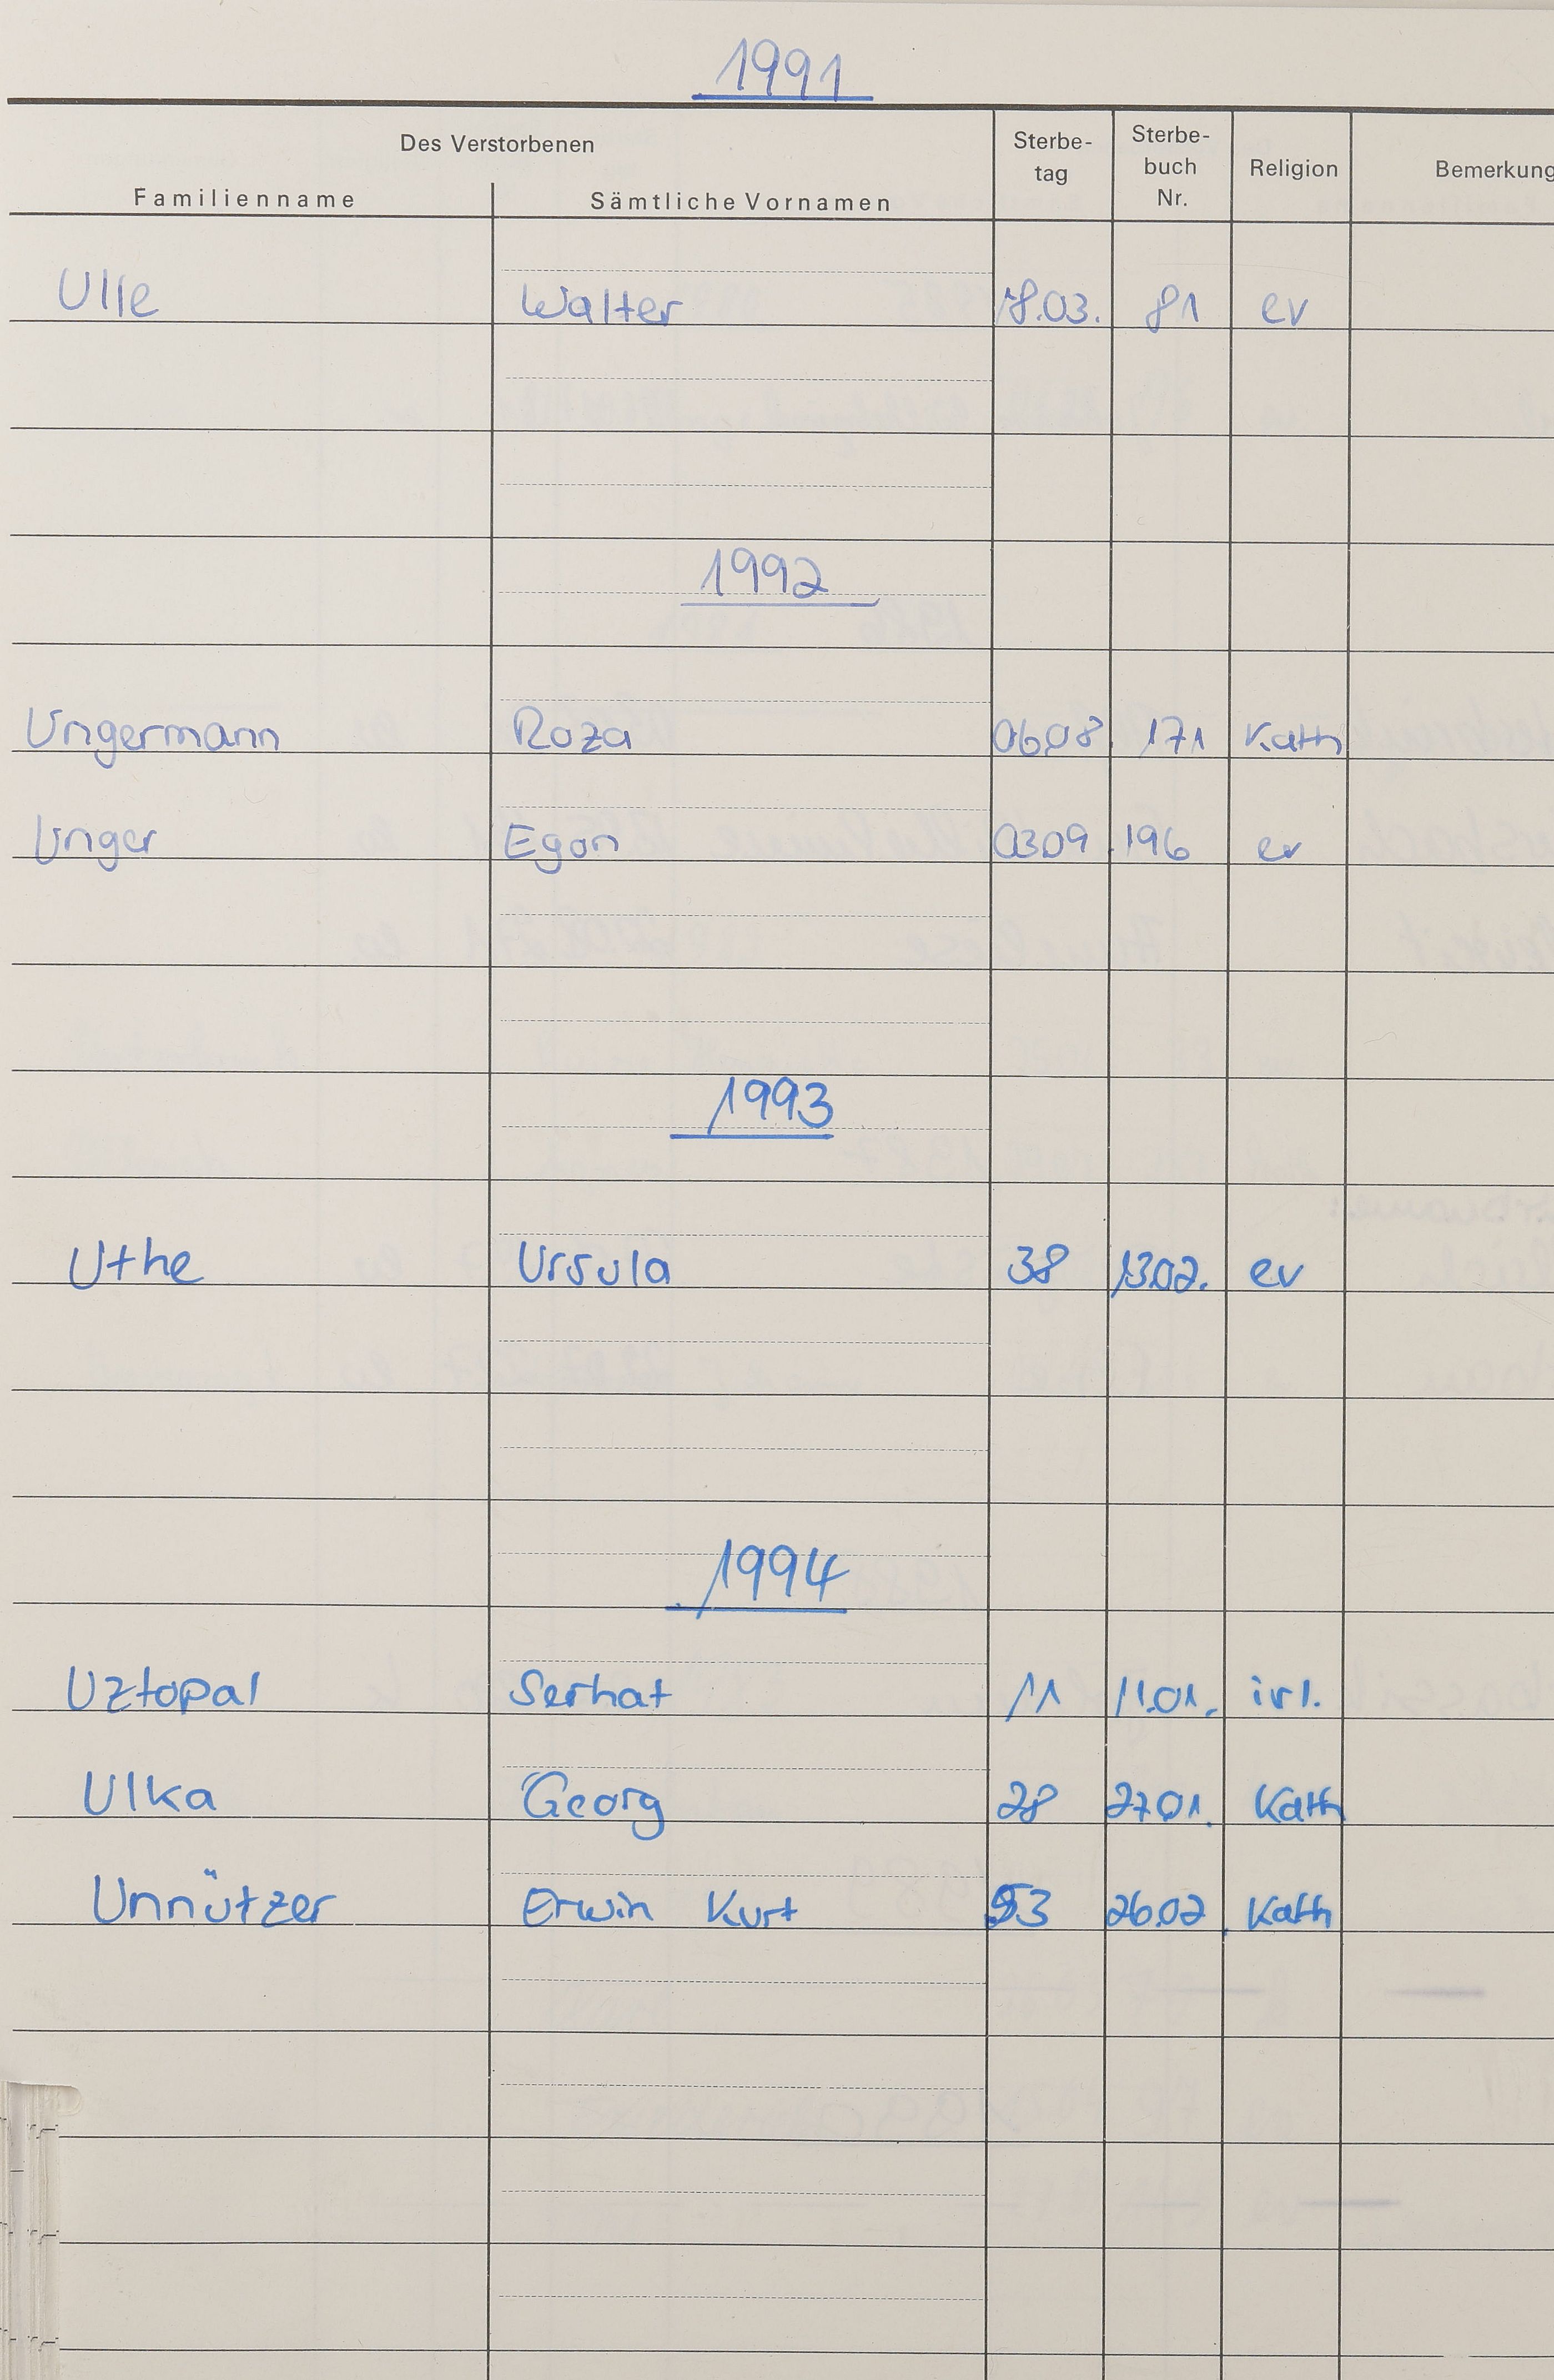 1991
Des Verstorbenen Sterbe- Sterbe- Religion Bemerkung
tag buch
Familienname Sämtliche Vornamen Nr.
Ulle Walter 18.03. 81 ev
1992
Ungermann Roza 06.08 171 Kath
Unger Egon 03.09. 196 ev
1993
Uthe Ursula 38 13.02. ev
1994
Uztopal Serhat 11 11.01. irl.
Ulka Georg 28 27.01. Kath
Unnützer Erwin Kurt 53 26.02. Kath